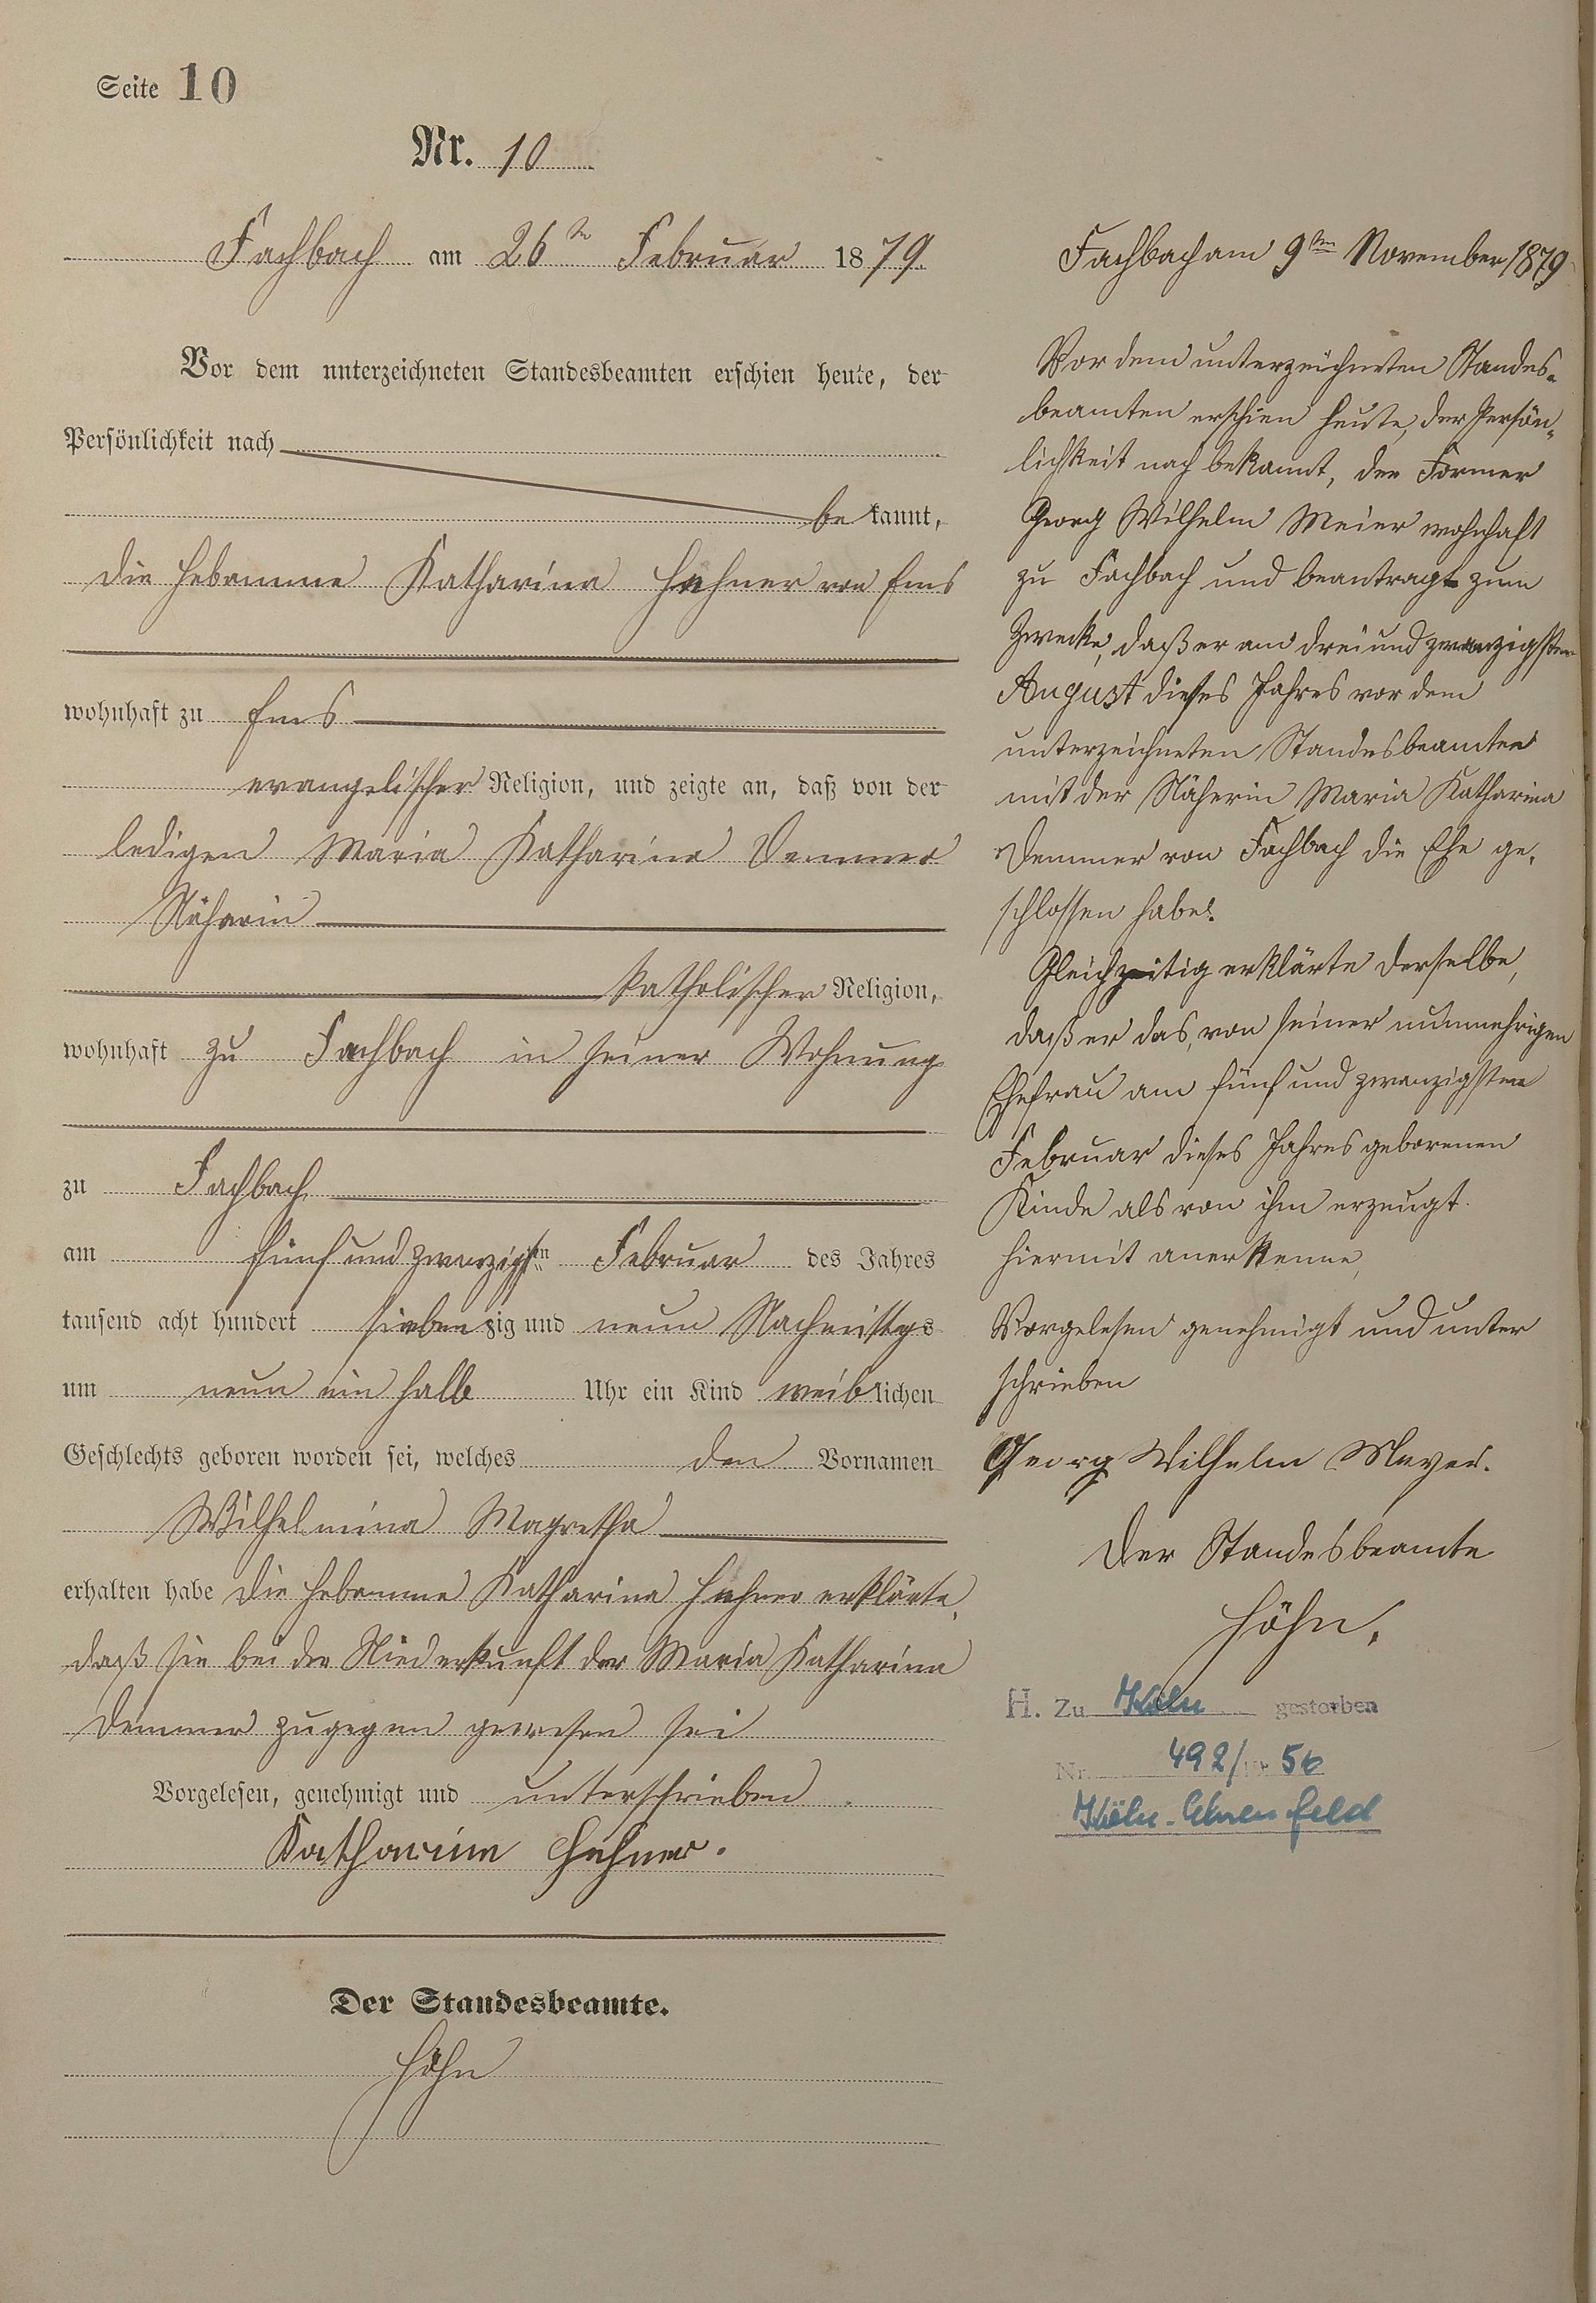 Seite 10
Nr. 10
Fachbach am 26ten Februar 1879.
Vor dem unterzeichneten Standesbeamten erschien heute, der
Persönlichkeit nach
be kannt,
die Hebamme Katharina Hehner von Ems
wohnhaft zu Ems
evangelischer Religion, und zeigte an, daß von der
ledigen Maria Katharina Demmer
Näherin
katholischer Religion,
wohnhaft zu Fachbach in seiner Wohnung
zu Fachbach
am fünf und zwanzigsten Februar des Jahres
tausend acht hundert siebenzig und neun Nachmittags
um neun ein halb Uhr ein Kind weiblichen
Geschlechts geboren worden sei, welches den Vornamen
Wilhelmina Magretha
erhalten habe die Hebamme Katharina Hehner erklärte,
daß sie bei der Niederkunft der Maria Katharina
Demmer zugegen gewesen sei
Vorgelesen, genehmigt und unterschrieben
Katharina Hehner.
Der Standesbeamte.
Höhn
Fachbach am 9ten November 1879
Vor dem unterzeichneten Standes-
beamten erschien heute, der Persön-
lichkeit nach bekannt, der Former
Georg Wilhelm Meier wohnhaft
zu Fachbach und beantragt zum
Zwecke, daß er am drei und zwanzigsten
August dieses Jahres vor dem
unterzeichneten Standesbeamten
mit der Näherin Maria Katharina
Demmer von Fachbach die Ehe ge-
schlossen habe.
Gleichzeitig erklärte derselbe,
daß er das, von seiner nunmehrigen
Ehefrau am fünf und zwanzigsten
Februar dieses Jahres geborenen
Kinde als von ihm erzeugt
hiermit anerkenne,
Vorgelesen genehmigt und unter
schrieben
Georg Wilhelm Meyer.
Der Standesbeamte
Höhn,
H. Zu Köln gestorben
Nr. 492/ 56
Köln-Ehrenfeld